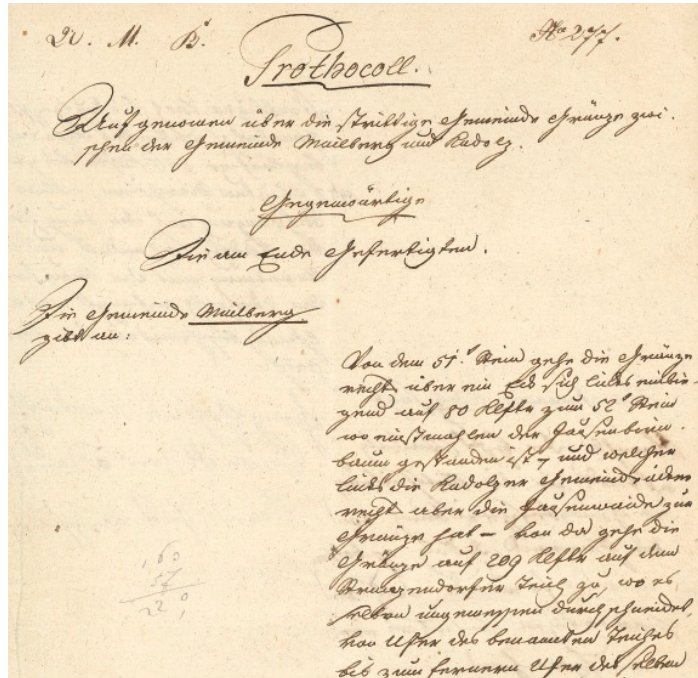 V. M. B. Nro 277.
Prothocoll.
Aufgenomen über die strittige Gemeinde Gränze zwi-
schen der Gemeinde Mailberg und Kadolz.
Gegenwärtige
Die am Ende Gefertigten.
Die Gemeinde Mailberg
gibt an:
Von dem 51t Stein gehe die Gränze
recht über ein Eck sich links einbie-
gend auf 80 Klftr zum 52t Stein
wo einstmahlen der
baum gestanden ist, und welcher
links die Kadolzer Gemeinde
recht aber die zur
Gränze hat – von da gehe die
Gränze auf 209 Klftr auf dem
Teich zu, wo es
selben ungemessen durchschneidet,
von Ufer des benannten Teiches
bis zum fernern Ufer des selben
160
57
220